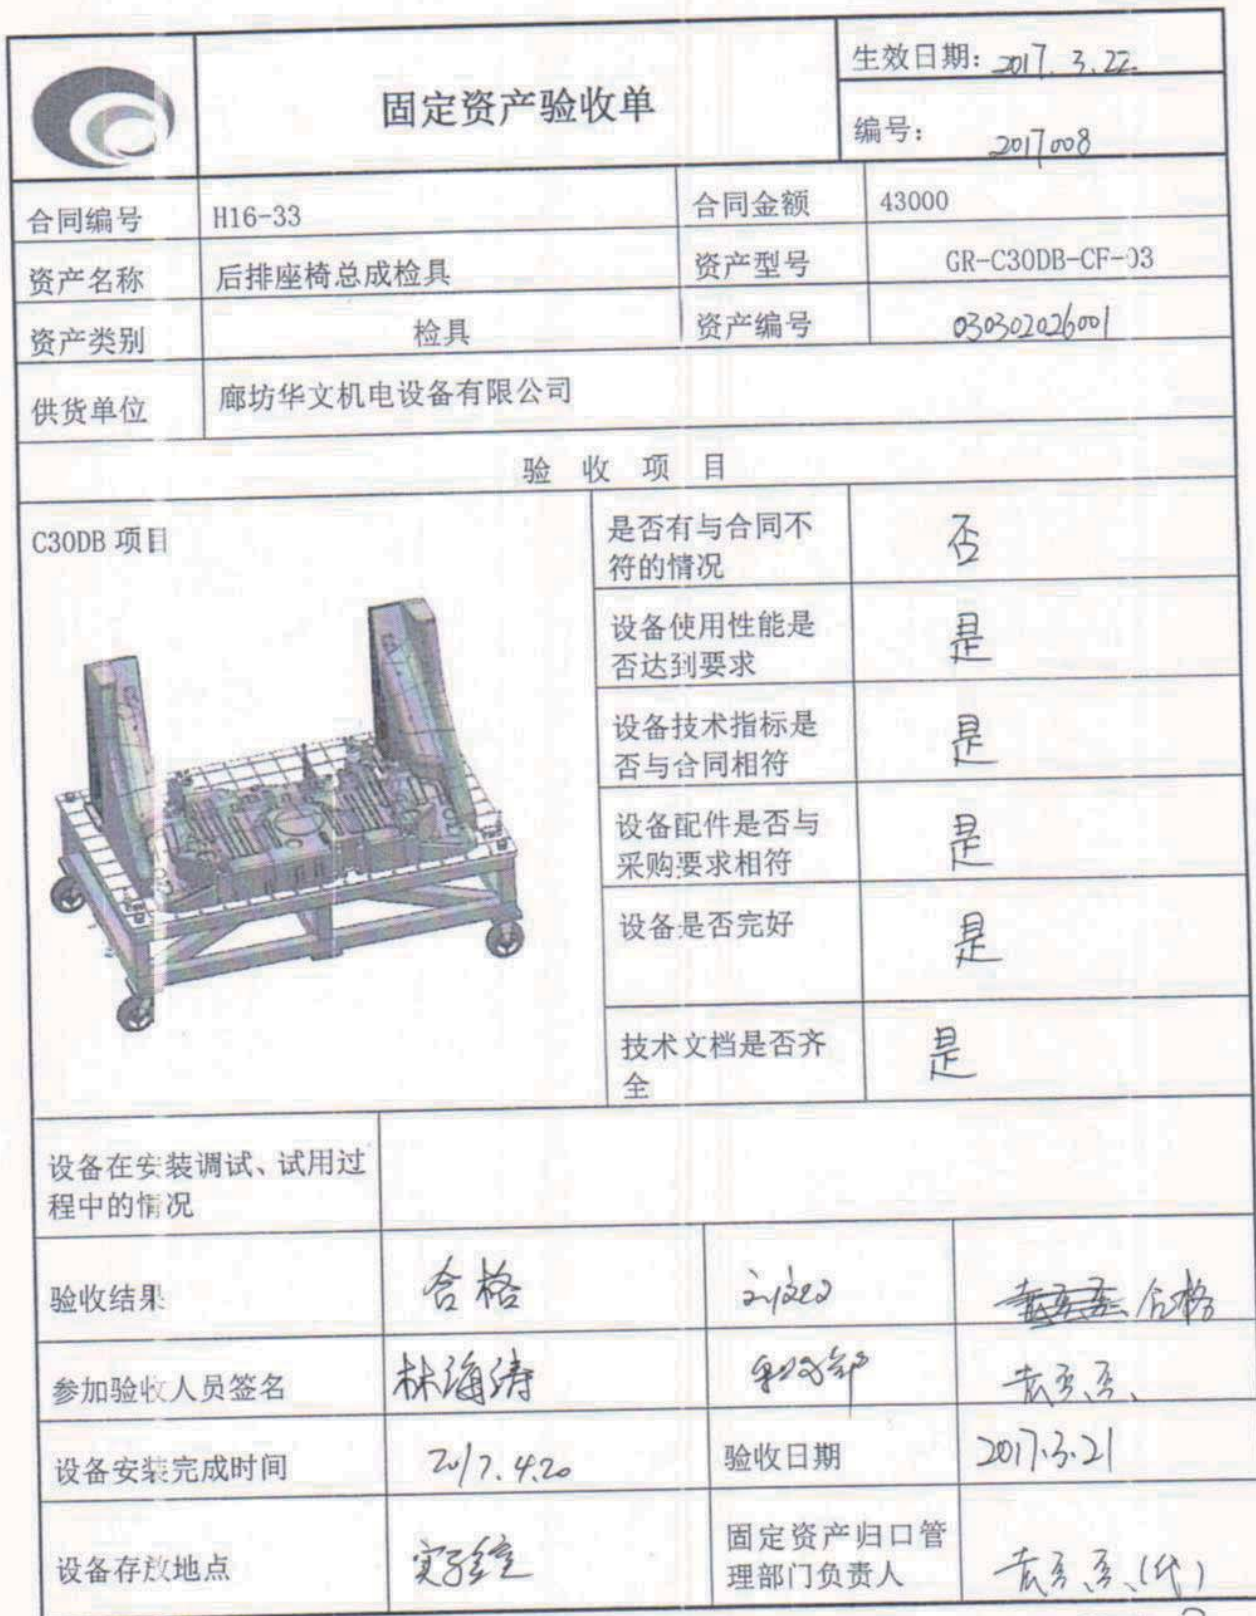 固定资产验收单
生效日期: 2017.3.22.
编号: 2017008
合同编号 H16-33 合同金额 43000
资产名称 后排座椅总成检具 资产型号 GR-C30DB-CF-03
资产类别 检具 资产编号 030302026001
供货单位 廊坊华文机电设备有限公司
验 收 项 目
C30DB 项目
是否有与合同不
符的情况
否
设备使用性能是
否达到要求
是
设备技术指标是
否与合同相符
是
设备配件是否与
采购要求相符
是
设备是否完好
是
技术文档是否齐
全
是
设备在安装调试、试用过
程中的情况
验收结果 合格 合格
参加验收人员签名 林海涛
设备安装完成时间 2017.4.20 验收日期 2017.3.21
设备存放地点 实验室
固定资产归口管
理部门负责人
(代)